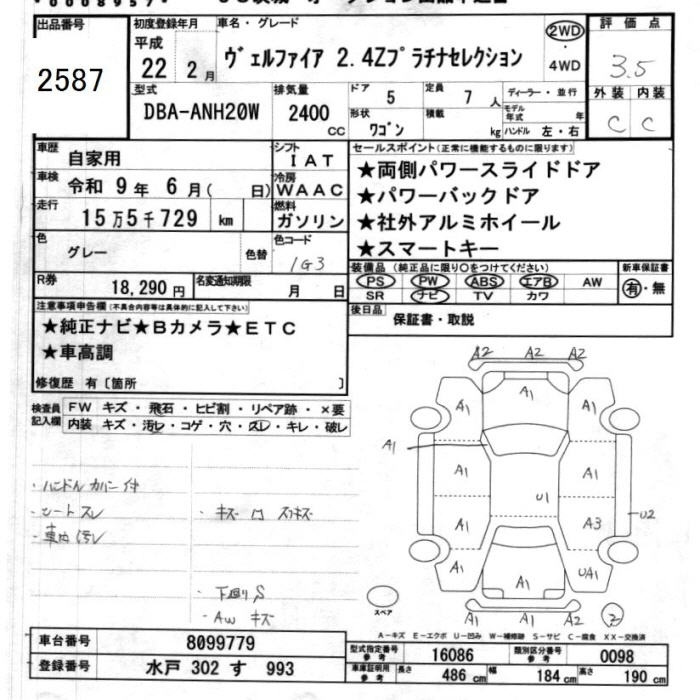 出品番号 初度登録年月 車名・グレード 評価点
2587 平成 22 2月 ヴェルファイア 2.4Zプラチナセレクション 2WD ・ 4WD 3.5
型式 排気量 ドア 5 定員 7 人 ディーラー・並行 外装 内装
DBA-ANH20W 2400 CC 形状 ワゴン 積載 kg モデル年式 年 ハンドル 左・右 C C
車歴 自家用 シフト IAT セールスポイント(正常に機能するものに限ります)
車検 令和 9年 6月( 日) 冷房 WAAC ★両側パワースライドドア
走行 15万5千729 km 燃料 ガソリン ★パワーバックドア
★社外アルミホイール
色 グレー 色替 色コード 1G3 ★スマートキー
R券 18,290円 名変通知期限 月 日 装備品(純正品に限り○をつけてください) 新車保証書
PS PW ABS エアB AW 有・無
SR ナビ TV カワ
注意事項申告欄(不具合内容等は具体的に記入して下さい) 後日品 保証書・取説
★純正ナビ★Bカメラ★ETC
★車高調
修復歴 有〔箇所 〕
検査員記入欄 FW キズ・飛石・ヒビ割・リペア跡・×要
内装 キズ・汚レ・コゲ・穴・スレ・キレ・破レ
A2 A2 A2
A1 A1 A1
A1
A1 A1
U1
U2
A1 A3
A1 A1 UA1
A2 A1 A2
・ハンドルカバー付
・シートスレ
・車内汚レ
・下廻りS
・AWキズ
スペア
A-キズ E-エクボ U-凹み W-補修跡 S-サビ C-腐食 XX-交換済
車台番号 8099779 型式指定番号 参考 16086 類別区分番号 参考 0098
登録番号 水戸 302 す 993 車庫証明用 参考 長さ 486 cm 幅 184 cm 高さ 190 cm